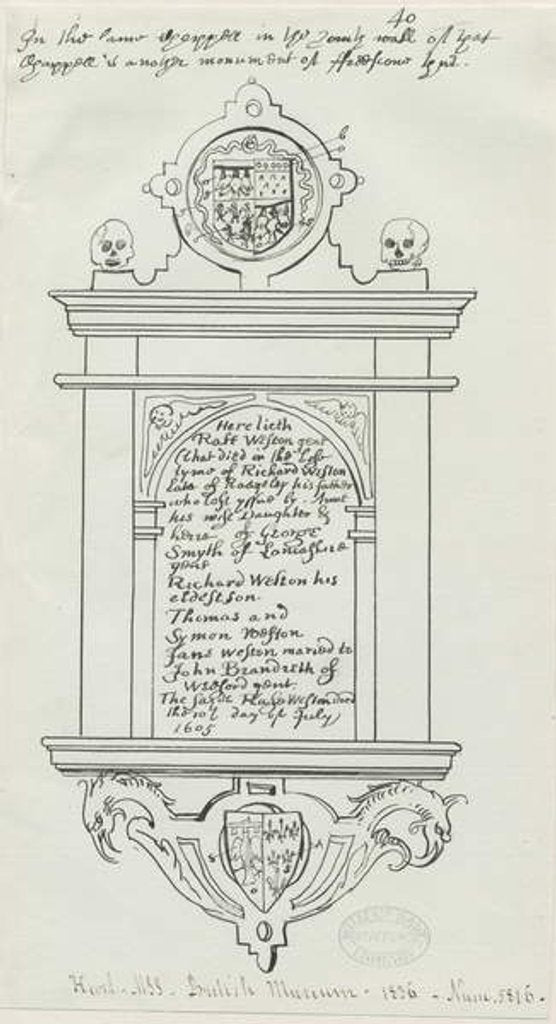 40
In the same Chappell in the South wall of that
Chappell is another monument of ffreestone
Here lieth
Rafe Weston gent
that died in the
tyme of Richard Weston
late of Rudgeley his father
who left yssue by Anne
his wife Daughter &
heire of George
Smyth of Lancashire
gent
Richard Weston his
eldest son
Thomas and
Symon Weston
Jane Weston maried to
John Brandreth of
Weeford gent.
The sayde Rafe Weston died
the 10th day of July
1605
Harl. MSS. British Museum - 1836 - Num. 5816.